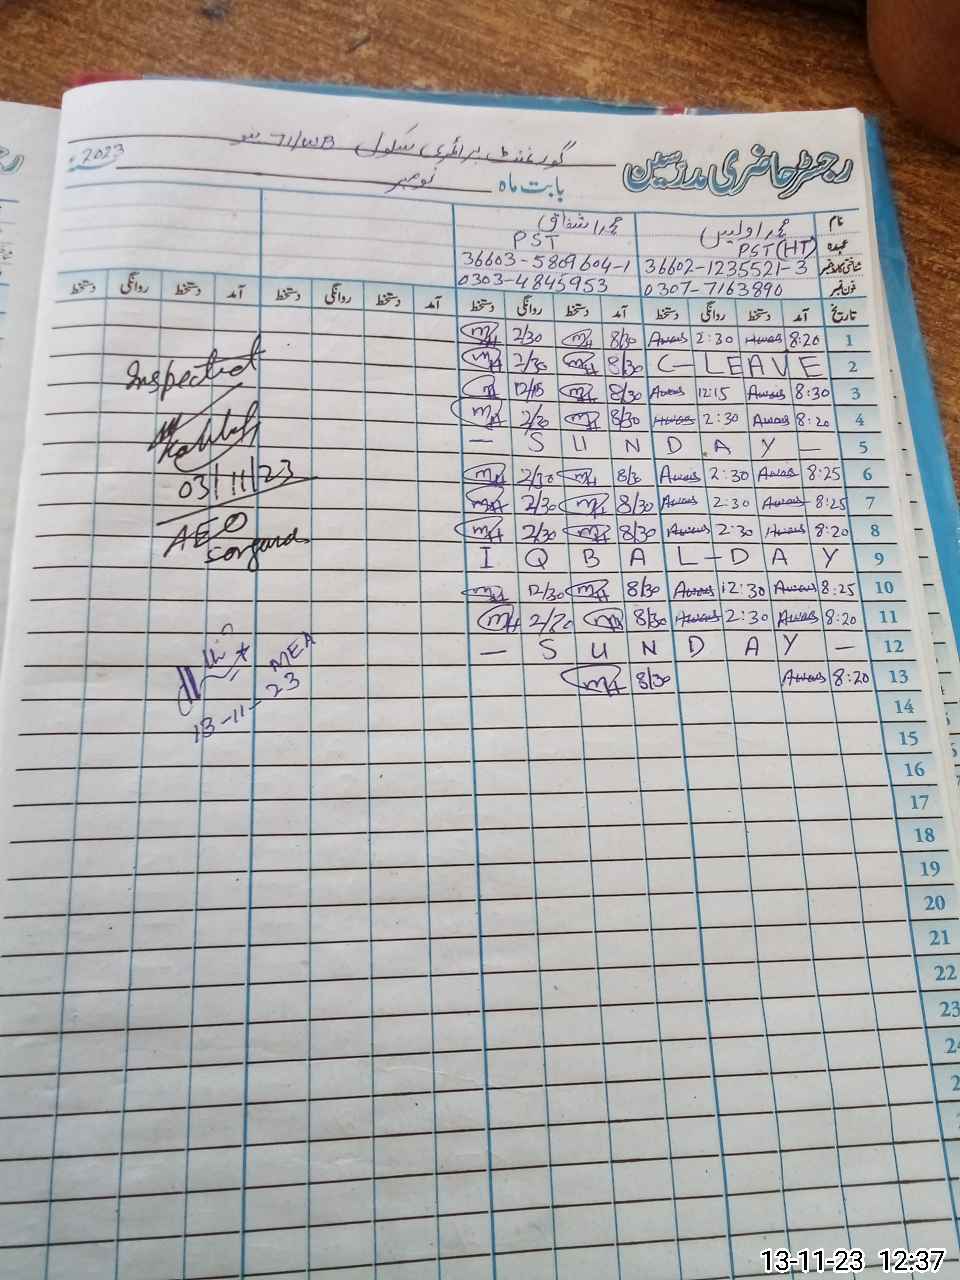 رجسٹر حاضری مدرسین گورنمنٹ پرائمری سکول 71/WB
بابت ماہ نومبر 2023
نام محمد اویس محمد اشفاق
عہدہ PST (HT) PST
شناختی کارڈ نمبر 36602-1235521-3 36603-5809604-1
فون نمبر 0307-7163890 0303-4845953
تاریخ آمد دستخط روانگی دستخط آمد دستخط روانگی دستخط آمد دستخط روانگی دستخط آمد دستخط روانگی دستخط
1 8:20 Awais 2:30 Awais 8/30 2/30
2 C-LEAVE 8/30 2/30
3 8:30 Awais 12:15 Awais 8/30 12/15
4 8:20 Awais 2:30 Awais 8/30 2/30
5 — SUNDAY —
6 8:25 Awais 2:30 Awais 8/30 2/30
7 8:25 Awais 2:30 Awais 8/30 2/30
8 8:20 Awais 2:30 Awais 8/30 2/30
9 IQBAL-DAY
10 8:25 Awais 12:30 Awais 8/30 12/30
11 8:20 Awais 2:30 Awais 8/30 2/30
12 — SUNDAY —
13 8:20 Awais 8/30
14
15
16
17
18
19
20
21
22
23
Inspected
03/11/23
AEO
MEA
13-11-23
13-11-23 12:37